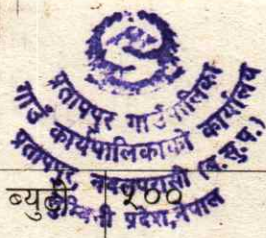 प्रतापपुर गाउँपालिका
गाउँ कार्यपालिकाको कार्यालय
प्रतापपुर, नवलपरासी (ब.सु.प.)
लुम्बिनी प्रदेश, नेपाल
१००